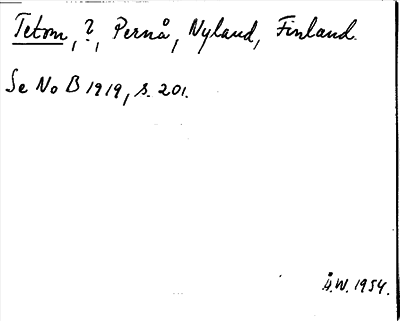 Tetom, ?, Pernå, Nyland, Finland.
Se No B 1919, s. 201.
Å.W. 1954.